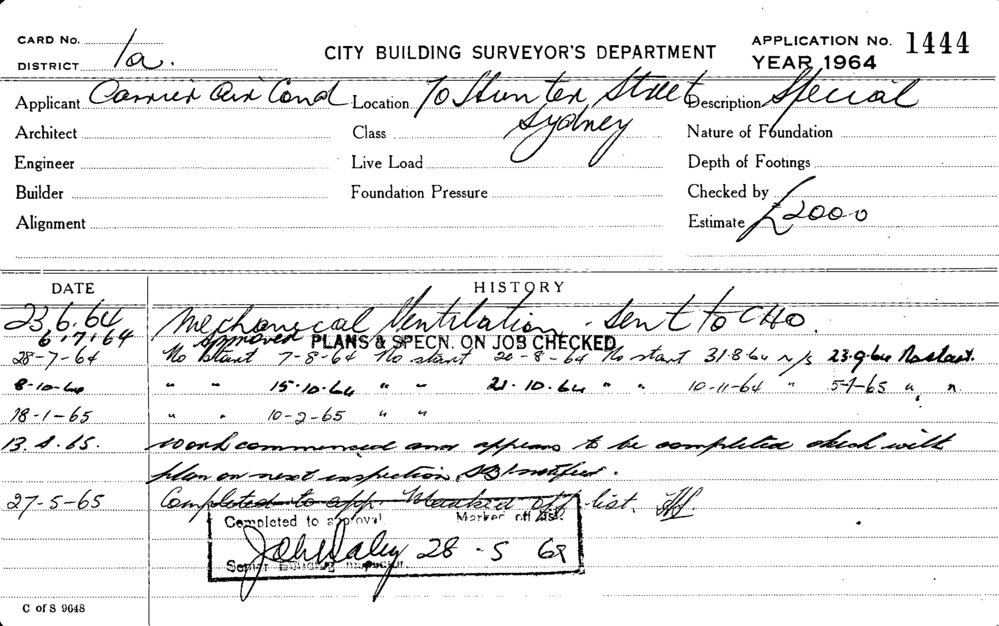 CARD No. CITY BUILDING SURVEYOR'S DEPARTMENT APPLICATION No. 1444
DISTRICT 1a. YEAR 1964
Applicant Carrier Air Cond Location 70 Hunter Street Description Special
Architect Class Sydney Nature of Foundation
Engineer Live Load Depth of Footings
Builder Foundation Pressure Checked by
Alignment Estimate £2000
DATE HISTORY
23.6.64 Mechanical Ventilation - Sent to CHO.
6.7.64 approved PLANS & SPECN. ON JOB CHECKED
28-7-64 No start 7-8-64 No start 20-8-64 No start 31.8.64 n/s 23.9.64 No start.
8-10-64 " " 15.10.64 " " 21.10.64 " " 10-11-64 " 5-1-65 " "
18-1-65 " " 10-2-65 " "
13.4.65. Work commenced and appears to be completed check with
plan on next inspection notified.
27-5-65 Completed to app. Marked off list.
Completed to approval Marked off list.
John Daley 28-5 69
Senior Building Inspector.
C of S 9648